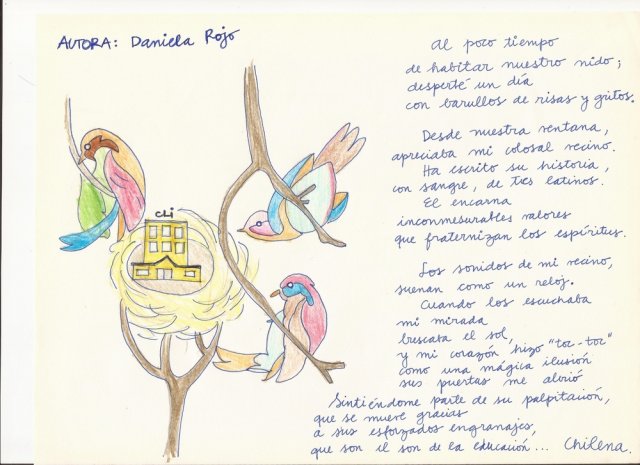 AUTORA: Daniela Rojo
CLI
Al poco tiempo
de habitar nuestro nido;
desperté un día
con barullos de risas y gritos.
Desde nuestra ventana,
apreciaba mi colosal vecino.
Ha escrito su historia,
con sangre, de tres latinos.
El encarna
inconmesurables valores
que fraternizan los espíritus.
Los sonidos de mi vecino,
suenan como un reloj.
Cuando los escuchaba
mi mirada
buscaba el sol,
y mi corazón hizo "toc-toc"
como una mágica ilusión
sus puertas me abrió
Sintiéndome parte de su palpitación,
que se mueve gracias
a sus esforzados engranajes,
que son el son de la educación... Chilena.